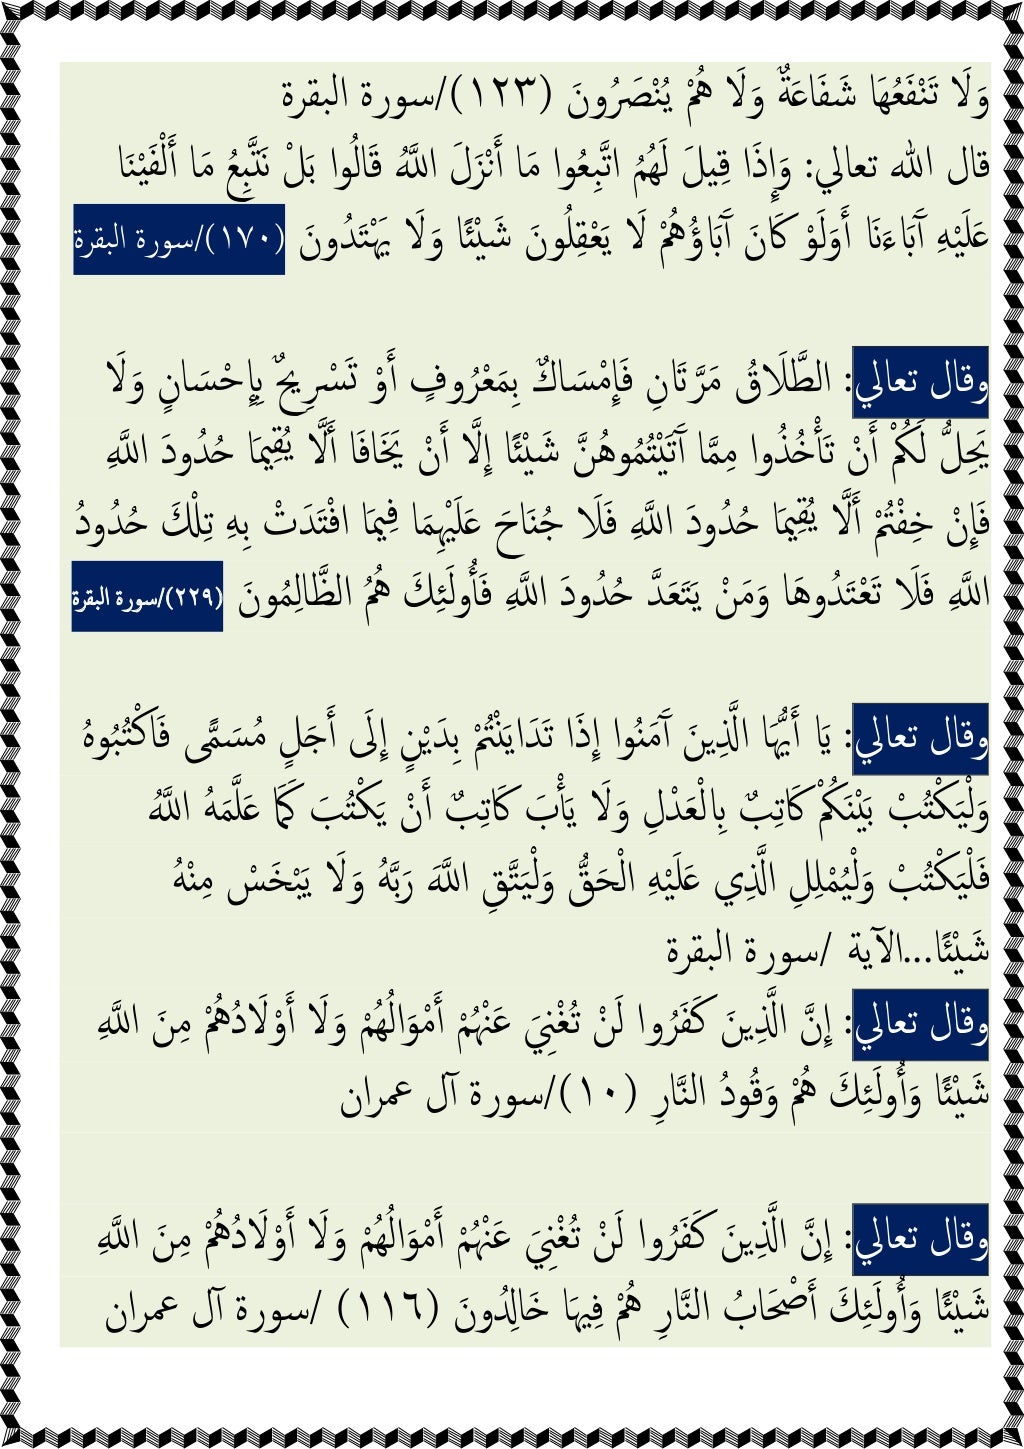 وَلَا تَنْفَعُهَا شَفَاعَةٌ وَلَا هُمْ يُنْصَرُونَ (١٢٣)/سورة البقرة
قال الله تعالي: وَإِذَا قِيلَ لَهُمُ اتَّبِعُوا مَا أَنْزَلَ اللَّهُ قَالُوا بَلْ نَتَّبِعُ مَا أَلْفَيْنَا
عَلَيْهِ آَبَاءَنَا أَوَلَوْ كَانَ آَبَاؤُهُمْ لَا يَعْقِلُونَ شَيْئًا وَلَا يَهْتَدُونَ (١٧٠)/سورة البقرة
وقال تعالي: الطَّلَاقُ مَرَّتَانِ فَإِمْسَاكٌ بِمَعْرُوفٍ أَوْ تَسْرِيحٌ بِإِحْسَانٍ وَلَا
يَحِلُّ لَكُمْ أَنْ تَأْخُذُوا مِمَّا آَتَيْتُمُوهُنَّ شَيْئًا إِلَّا أَنْ يَخَافَا أَلَّا يُقِيمَا حُدُودَ اللَّهِ
فَإِنْ خِفْتُمْ أَلَّا يُقِيمَا حُدُودَ اللَّهِ فَلَا جُنَاحَ عَلَيْهِمَا فِيمَا افْتَدَتْ بِهِ تِلْكَ حُدُودُ
اللَّهِ فَلَا تَعْتَدُوهَا وَمَنْ يَتَعَدَّ حُدُودَ اللَّهِ فَأُولَئِكَ هُمُ الظَّالِمُونَ (٢٢٩)/سورة البقرة
وقال تعالي: يَا أَيُّهَا الَّذِينَ آَمَنُوا إِذَا تَدَايَنْتُمْ بِدَيْنٍ إِلَى أَجَلٍ مُسَمًّى فَاكْتُبُوهُ
وَلْيَكْتُبْ بَيْنَكُمْ كَاتِبٌ بِالْعَدْلِ وَلَا يَأْبَ كَاتِبٌ أَنْ يَكْتُبَ كَمَا عَلَّمَهُ اللَّهُ
فَلْيَكْتُبْ وَلْيُمْلِلِ الَّذِي عَلَيْهِ الْحَقُّ وَلْيَتَّقِ اللَّهَ رَبَّهُ وَلَا يَبْخَسْ مِنْهُ
شَيْئًا...الآية /سورة البقرة
وقال تعالي: إِنَّ الَّذِينَ كَفَرُوا لَنْ تُغْنِيَ عَنْهُمْ أَمْوَالُهُمْ وَلَا أَوْلَادُهُمْ مِنَ اللَّهِ
شَيْئًا وَأُولَئِكَ هُمْ وَقُودُ النَّارِ (١٠)/سورة آل عمران
وقال تعالي: إِنَّ الَّذِينَ كَفَرُوا لَنْ تُغْنِيَ عَنْهُمْ أَمْوَالُهُمْ وَلَا أَوْلَادُهُمْ مِنَ اللَّهِ
شَيْئًا وَأُولَئِكَ أَصْحَابُ النَّارِ هُمْ فِيهَا خَالِدُونَ (١١٦) /سورة آل عمران